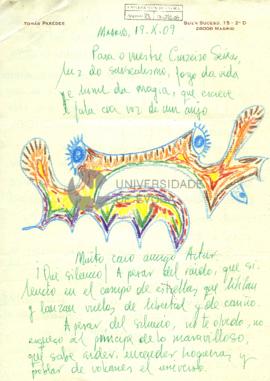 TOMÁS PAREDES
BUEN SUCESO, 15 - 2º D
28008 MADRID
MADRID, 19.X.09
Para o mestre Cruzeiro Seixas,
luz do surrealismo, fogo da vida
e lume da magia, que escreve
e fala coa voz de um anjo
UNIVERSIDADE
Muito caro amigo Artur:
¡Que silencio! A pesar del ruido, que si-
lencio en el campo de estrellas que titilan
y lanzan vuelos de libertad y de cariño.
A pesar del silencio, no te olvido, no
al príncipe de lo maravilloso,
que sabe arder, encender hogueras y
poblar de volcanes el universo.